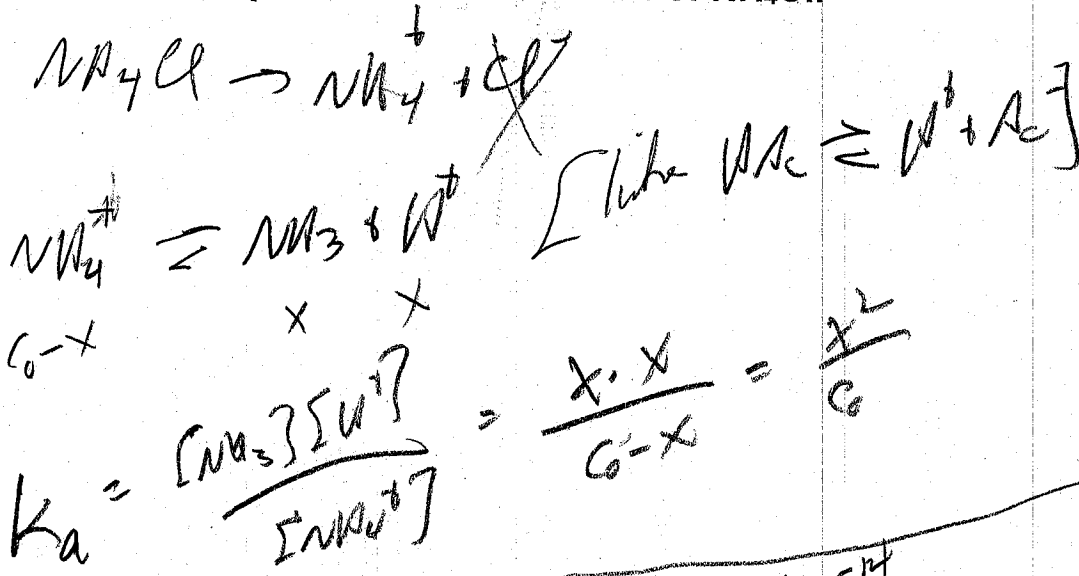 NH₄Cl → NH₄⁺ + Cl⁻
NH₄⁺ ⇌ NH₃ + H⁺ [like HAc ⇌ H⁺ + Ac⁻]
C₀-x x x
Ka = [NH₃][H⁺] / [NH₄⁺] = x·x / C₀-x = x² / C₀
-14